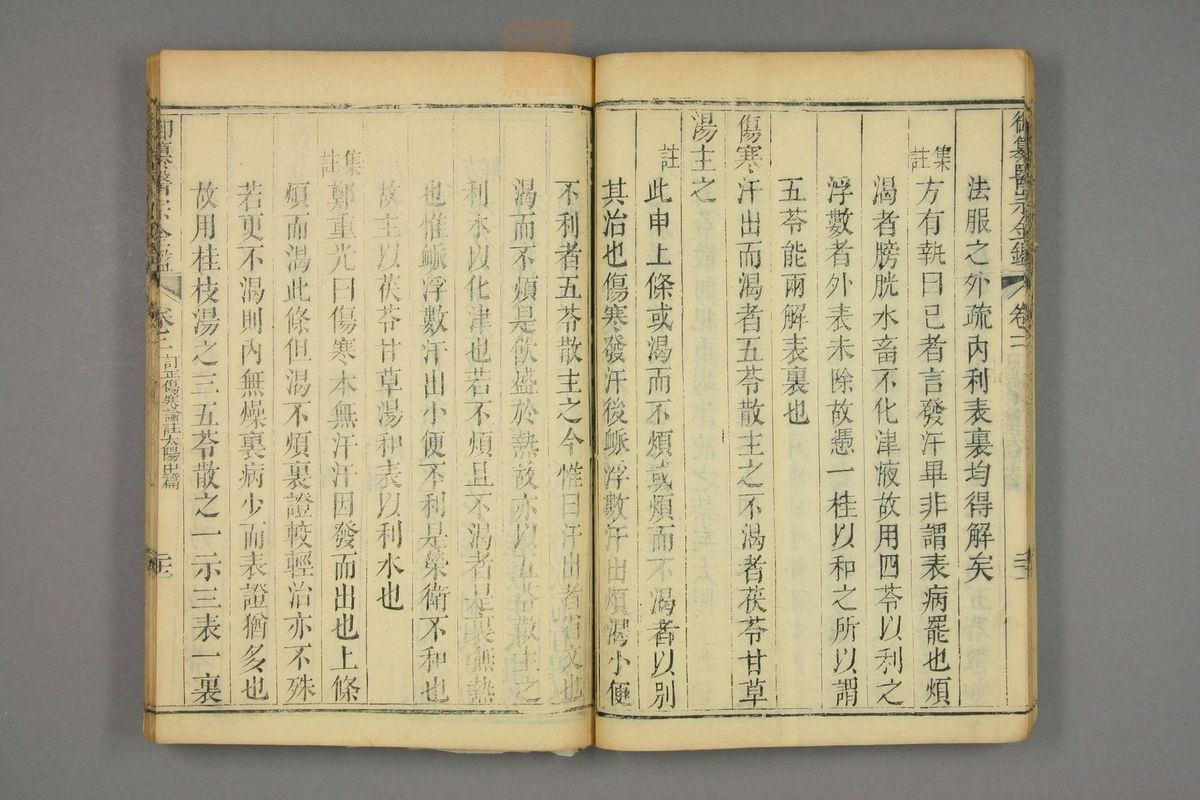 御纂醫宗金鑑 卷三
法服之外疏內利表裏均得解矣
集註 方有執曰已者言發汗畢非謂表病罷也煩
渴者膀胱水畜不化津液故用四苓以利之
浮數者外表未除故憑一桂以和之所以謂
五苓能兩解表裏也
傷寒汗出而渴者五苓散主之不渴者茯苓甘草
湯主之
註 此申上條或渴而不煩或煩而不渴者以別
其治也傷寒發汗後脈浮數汗出煩渴小便
不利者五苓散主之今惟曰汗出者省文也
渴而不煩是飲盛於熱故亦以五苓散主之
利水以化津也若不煩且不渴者是裏無熱
也惟脈浮數汗出小便不利是榮衛不和也
故主以茯苓甘草湯和表以利水也
集註 鄭重光曰傷寒本無汗汗因發而出也上條
煩而渴此條但渴不煩裏證較輕治亦不殊
若更不渴則內無燥裏病少而表證猶多也
故用桂枝湯之三五苓散之一示三表一裏
御纂醫宗金鑑 卷三 訂正傷寒論註太陽中篇